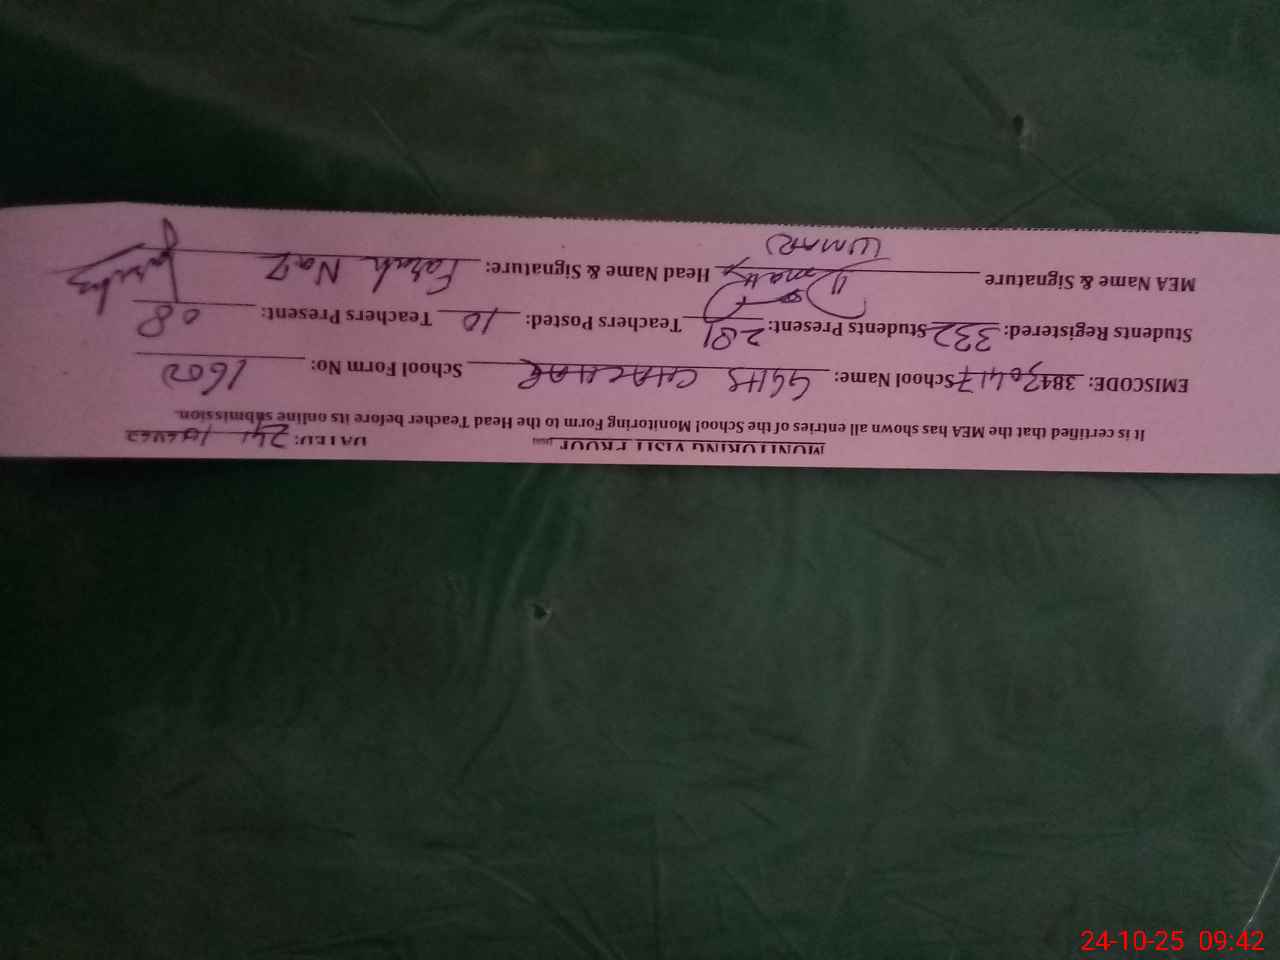 MONITORING VISIT PROOF DATED: 24
It is certified that the MEA has shown all entries of the School Monitoring Form to the Head Teacher before its online submission.
EMISCODE: 38420417 School Name: GGHS CHACHAR School Form No: 1602
Students Registered: 332 Students Present: 281 Teachers Posted: 10 Teachers Present: 08
MEA Name & Signature Umar Head Name & Signature: Farah Naz
UMAR
24-10-25 09:42